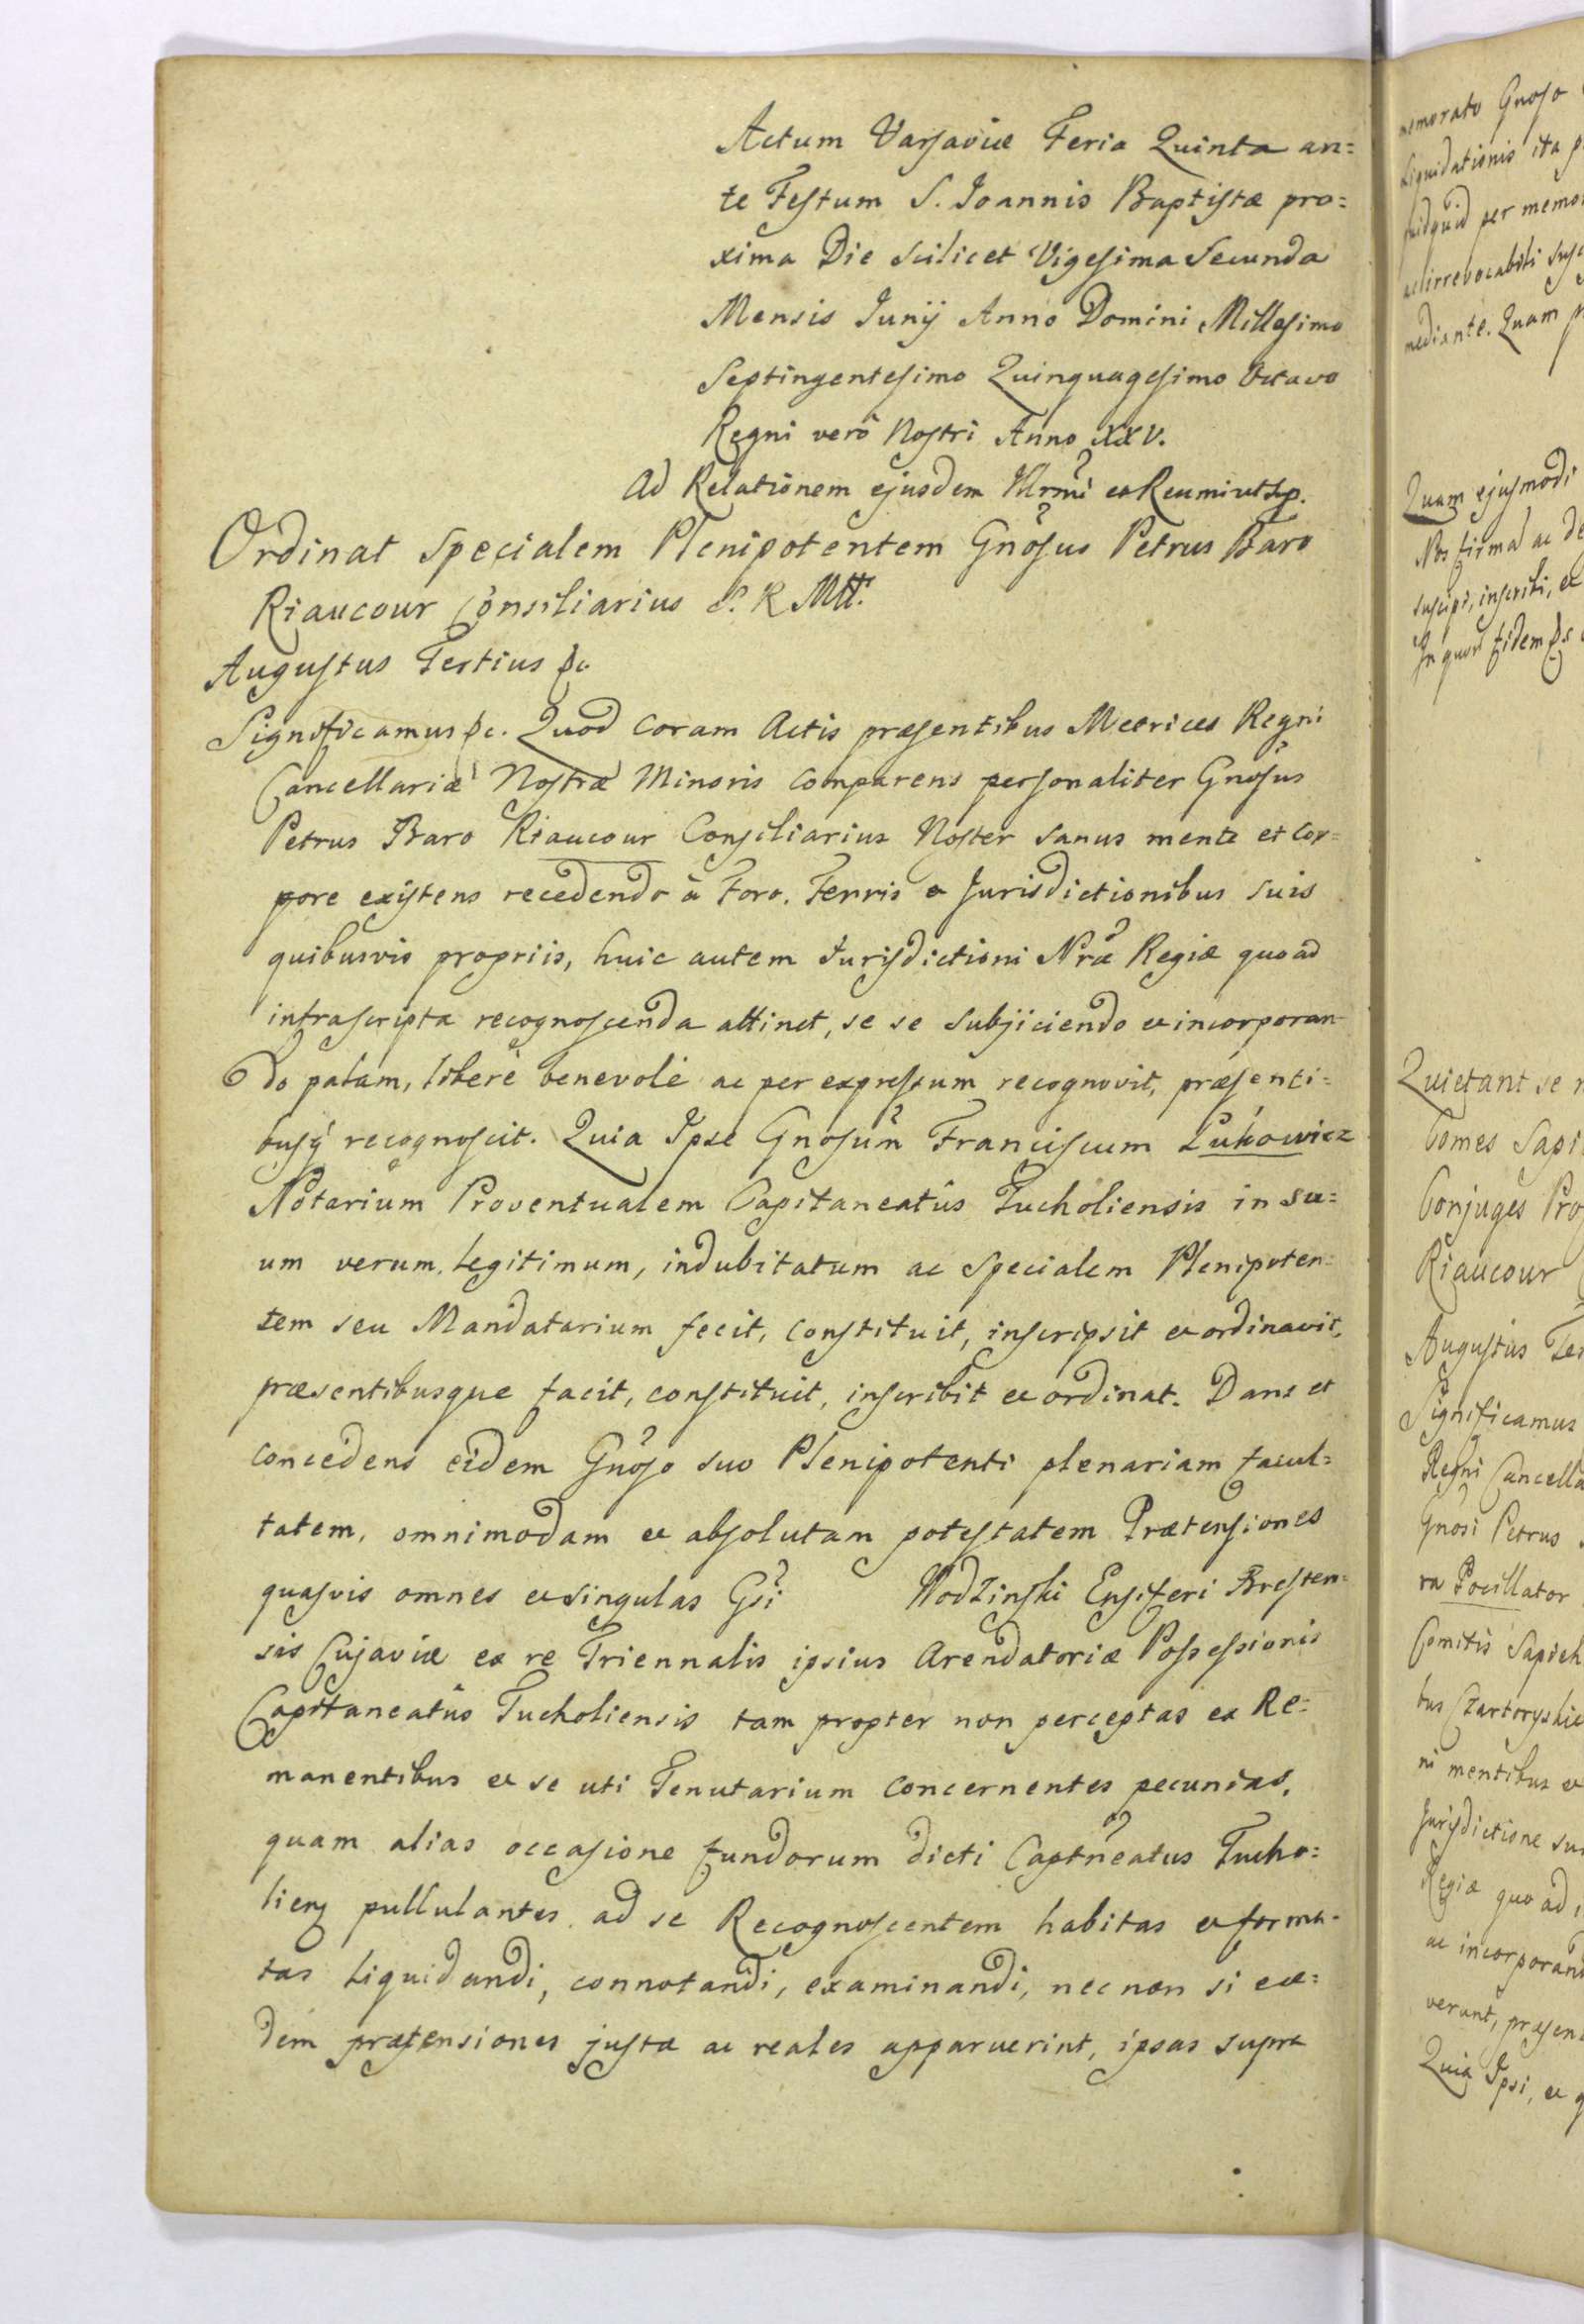 Actum Varsaviæ Feria Quinta an=
te Festum S. Joannis Baptistæ pro=
xima Die scilicet Vigesima Secunda
Mensis Junij Anno Domini Millesimo
Septingentesimo Quinquagesimo Octavo
Regni verò Nostri Anno XXV.
Ad Relationem ejusdem Illrmi et Rеvmi ut sp.
Ordinat Specialem Plenipotentem Gnosus Petrus Baro
Riaucour Consiliarius S. R. Mtt.
Augustus Tertius &c.
Significamus &c. Quod coram Actis præsentibus Metrices Regni
Cancellariæ Nostræ Minoris comparens personaliter Gnosus
Petrus Baro Riaucour Consiliarius Noster sanus mente et cor=
pore existens recedendo à Foro. Terris et Jurisdictionibus suis
quibusvis propriis, huic autem Jurisdictioni Nræ Regiæ quoad
infrascripta recognoscenda attinet, se se subjiciendo et incorporan=
do palam, liberè benevolè ac per expressum recognovit, præsenti=
busq recognoscit. Quia Ipse Gnosum Franciscum Lukowicz
Notarium Proventualem Capitaneatûs Tucholiensis in su=
um verum, legitimum, indubitatum ac specialem Plenipoten=
tem seu Mandatarium fecit, constituit, inscripsit et ordinavit,
præsentibusque facit, constituit, inscribit et ordinat. Dans et
concedens eidem Gnoso suo Plenipotenti plenariam facul=
tatem, omnimodam et absolutam potestatem Prætensiones
quasvis omnes et singulas Gsi Wodzinski Ensiferi Bresten=
sis Cujaviæ ex re Triennalis ipsius Arendatoriæ Possessionis
Capitaneatûs Tucholiensis tam propter non perceptas ex Re=
manentibus et se uti Tenutarium concernentes pecunias,
quam alias occasione fundorum dicti Captneatus Tucho=
lien pullulantes, ad se Recognoscentem habitas et forma=
tas liquidandi, connotandi, examinandi, nec non si eæ=
dem prætensiones justæ ac reales apparuerint, ipsas supra
memorato Gnoso
Liquidationis ita
quidquid per memo
irrevocabili
mediante. Quam
Quam ejusmodi
Nos firma ac de
suscipi, inscribi, et
In quor fidem &c
Quietant se
Comes Sapi
Conjuges Pro
Riaucour
Augustus Ter
Significamus
Regni Cancella
Gnosi Petrus
ra Pocillator
Comitis Sapieh
tus Czartoryskie
ni mentibus et
Jurisdictione su
Regiæ quo ad,
ac incorporan
verunt, præsen
Quia Ipsi, et q